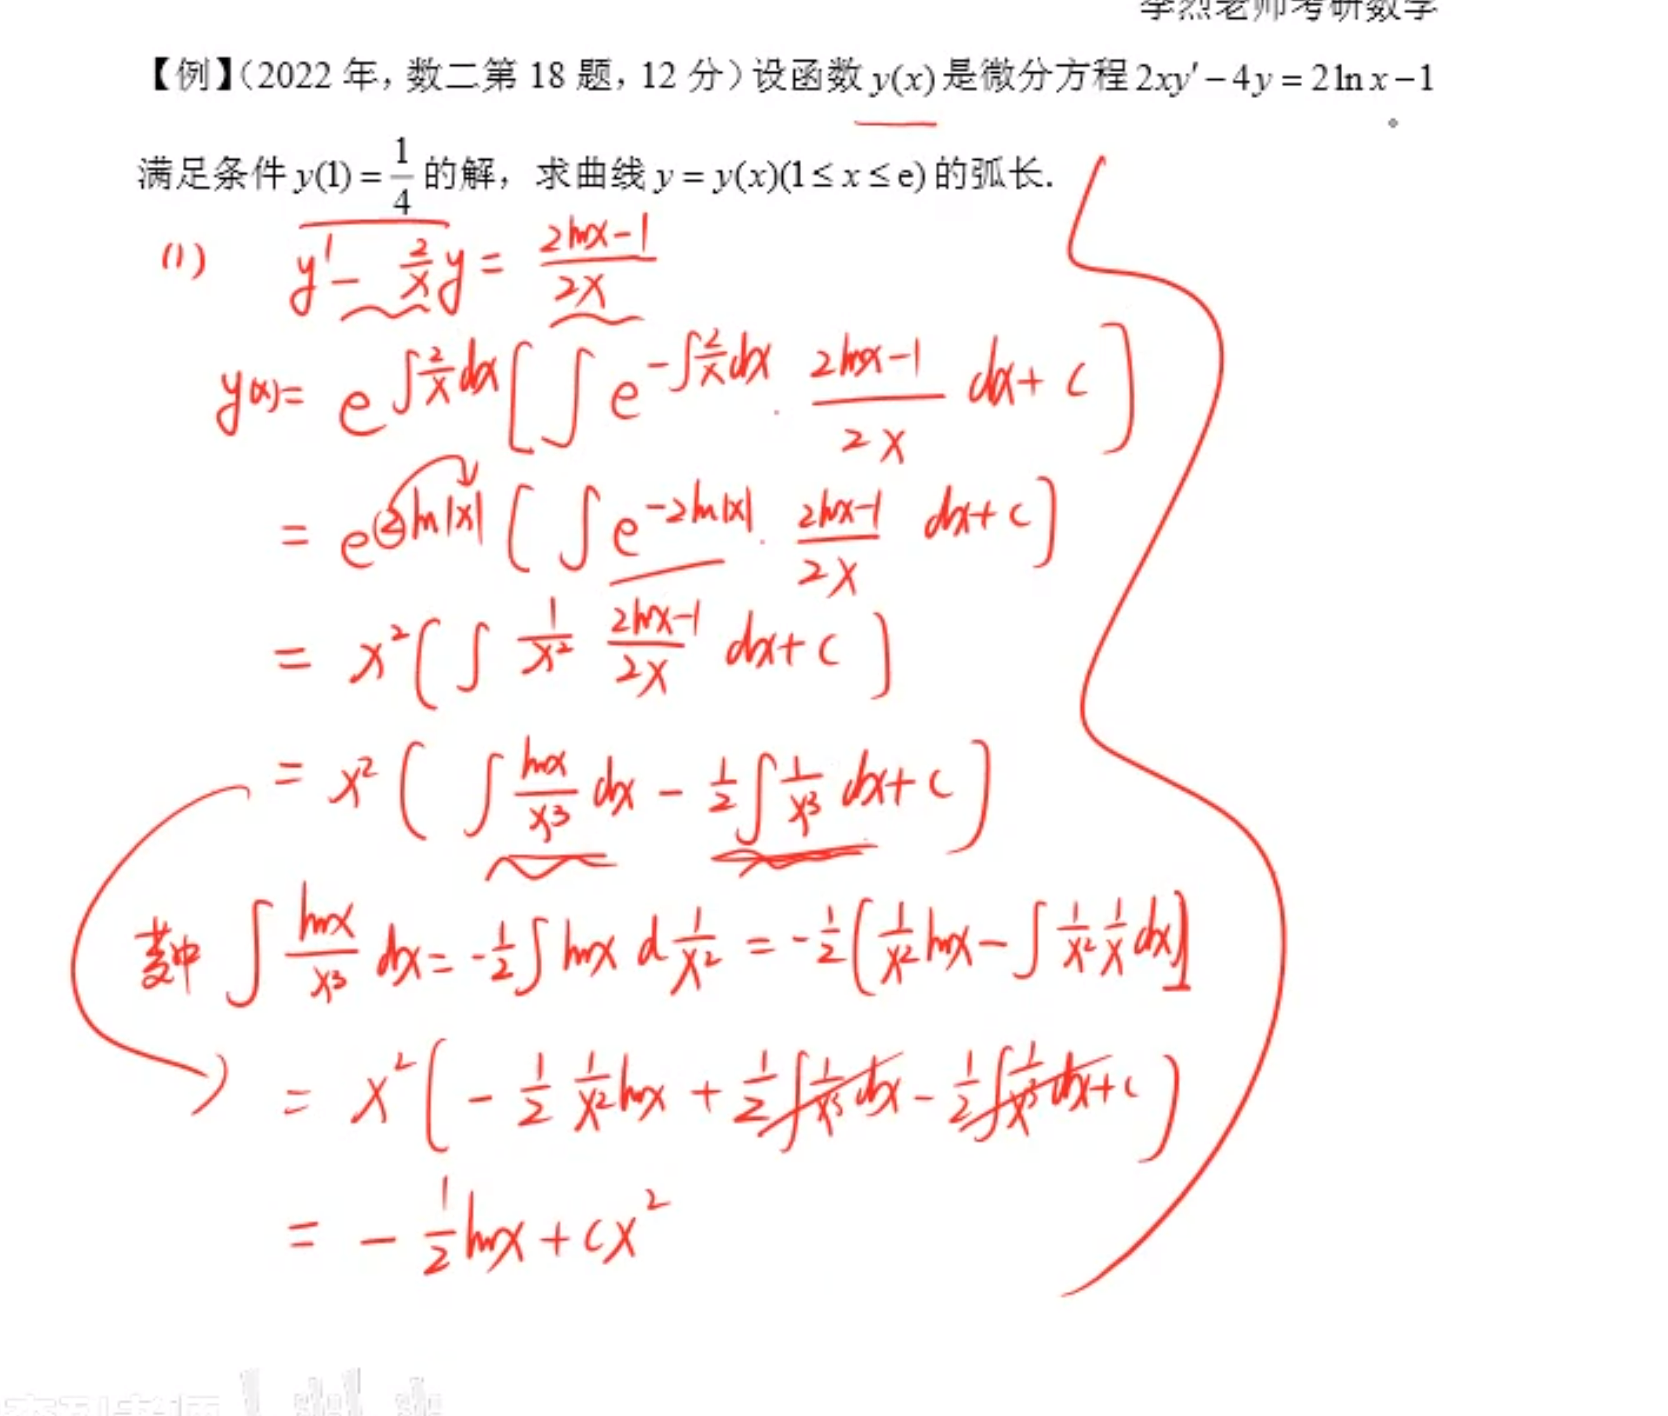 李烈老师考研数学
【例】（2022 年，数二第 18 题，12 分）设函数 y(x) 是微分方程 2xy′ − 4y = 2ln x − 1
满足条件 y(1) = 1/4 的解，求曲线 y = y(x)(1 ≤ x ≤ e) 的弧长.
(1) y′ − 2/x y = (2lnx−1)/(2x)
y(x) = e^{∫2/x dx} [ ∫ e^{−∫2/x dx} · (2lnx−1)/(2x) dx + C ]
= e^{2ln|x|} [ ∫ e^{−2ln|x|} · (2lnx−1)/(2x) dx + C ]
= x² [ ∫ 1/x² (2lnx−1)/(2x) dx + C ]
= x² [ ∫ lnx/x³ dx − 1/2 ∫ 1/x³ dx + C ]
其中 ∫ lnx/x³ dx = −1/2 ∫ lnx d 1/x² = −1/2 [ 1/x² lnx − ∫ 1/x² 1/x dx ]
= x² [ − 1/2 1/x² lnx + 1/2 ∫ 1/x³ dx − 1/2 ∫ 1/x³ dx + C ]
= − 1/2 lnx + Cx²
李烈老师